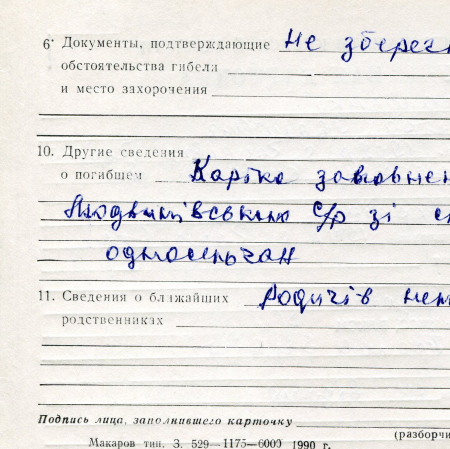 6. Документы, подтверждающие Не зберег
обстоятельства гибели
и место захоронения
10. Другие сведения
о погибшем Картка заповнен
с/р зі с
односельчан
11. Сведения о ближайших Родичів нем
родственниках
Подпись лица, заполнившего карточку
(разборчи
Макаров тип. З. 529—1175—6000 1990 г.